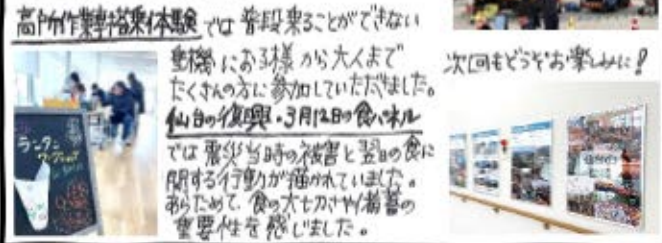 高所作業車搭乗体験では普段乗ることができない
重機にお子様から大人まで
たくさんの方に参加していただきました。
仙台の復興・3月12日の食パネル
では震災当時の被害と翌日の食に
関する行動が描かれていました。
あらためて、食の大切さや備蓄の
重要性を感じました。
次回もどうぞお楽しみに!
ランタン
ワークショップ